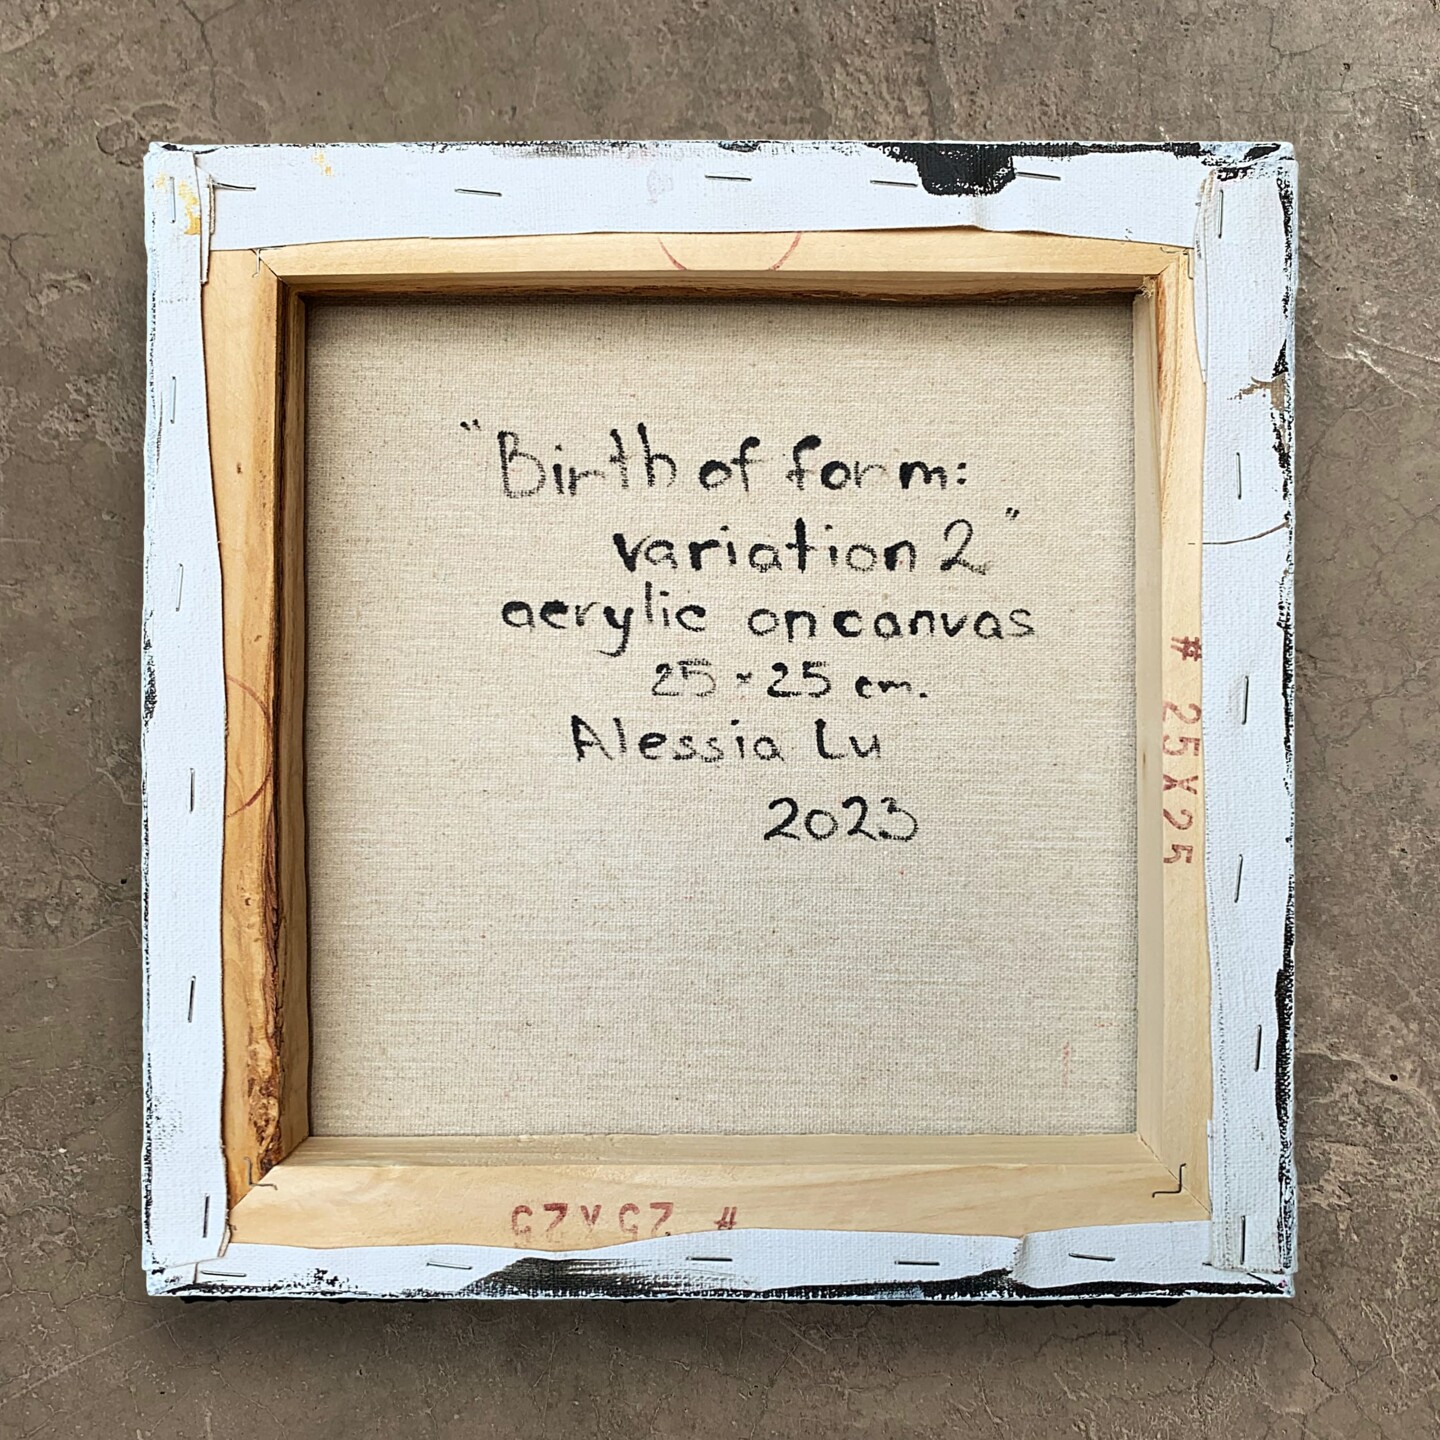 "Birth of form:
variation 2"
acrylic on canvas
25 × 25 cm.
Alessia Lu
2023
# 25X25
# 25X25